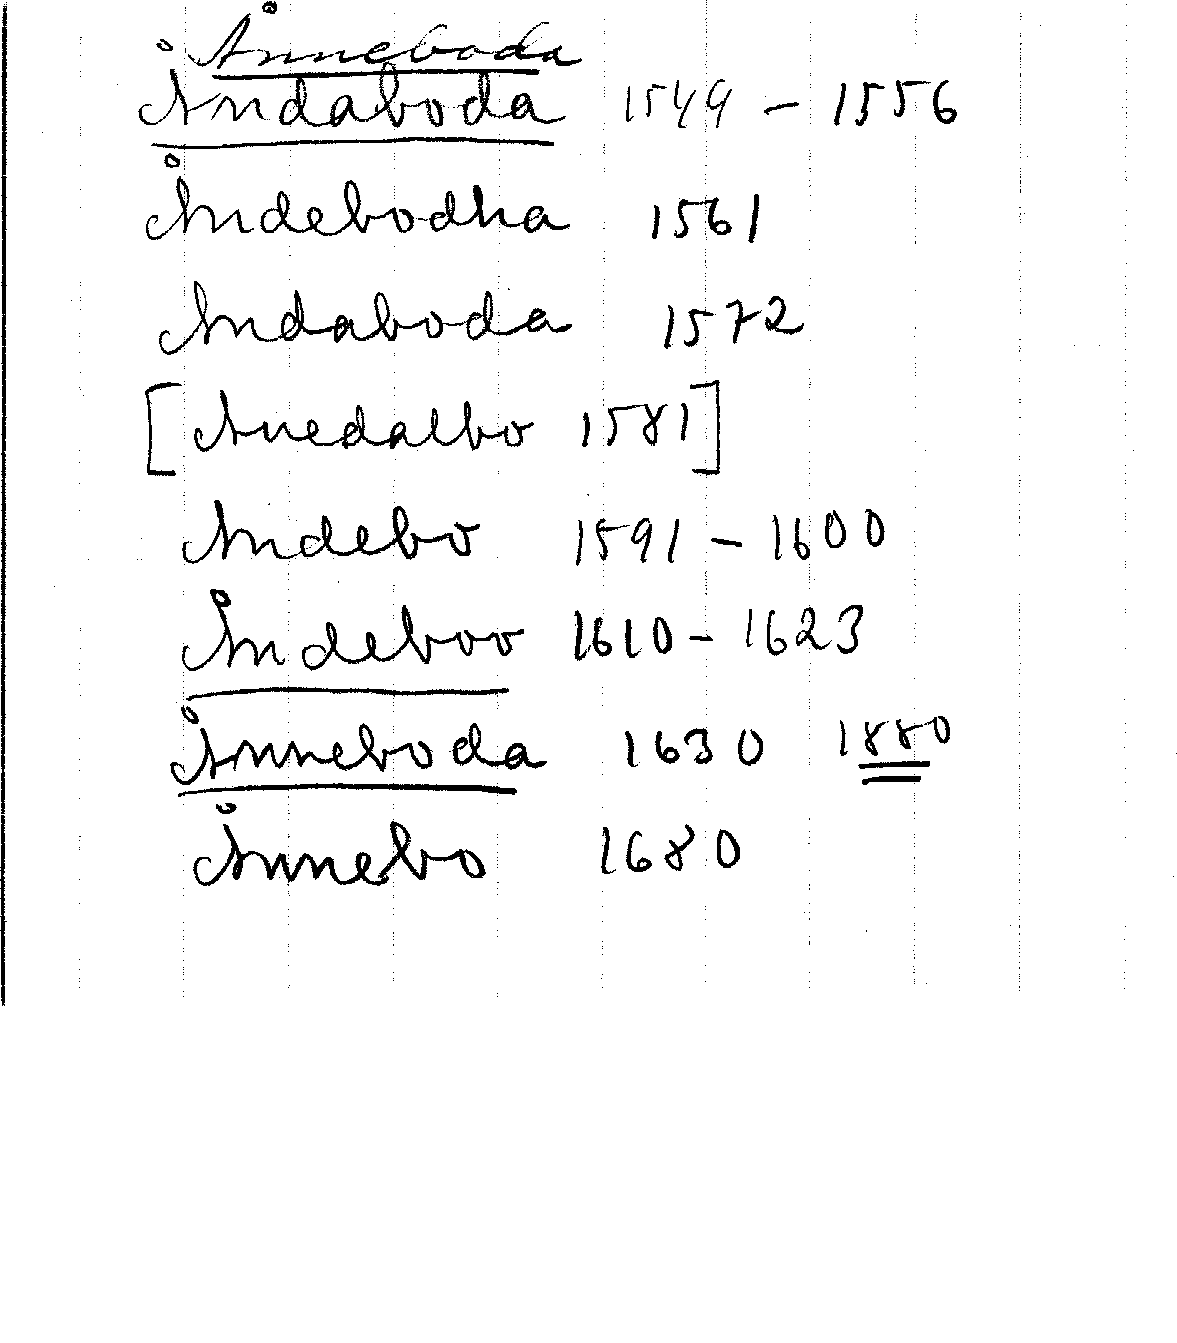 Ånneboda
Åndaboda 1549 - 1556
Åndebodha 1561
Andaboda 1572
[Anedalbo 1581]
Andebo 1591 - 1600
Åndeboo 1610 - 1623
Ånneboda 1630 1880
Ånnebo 1680